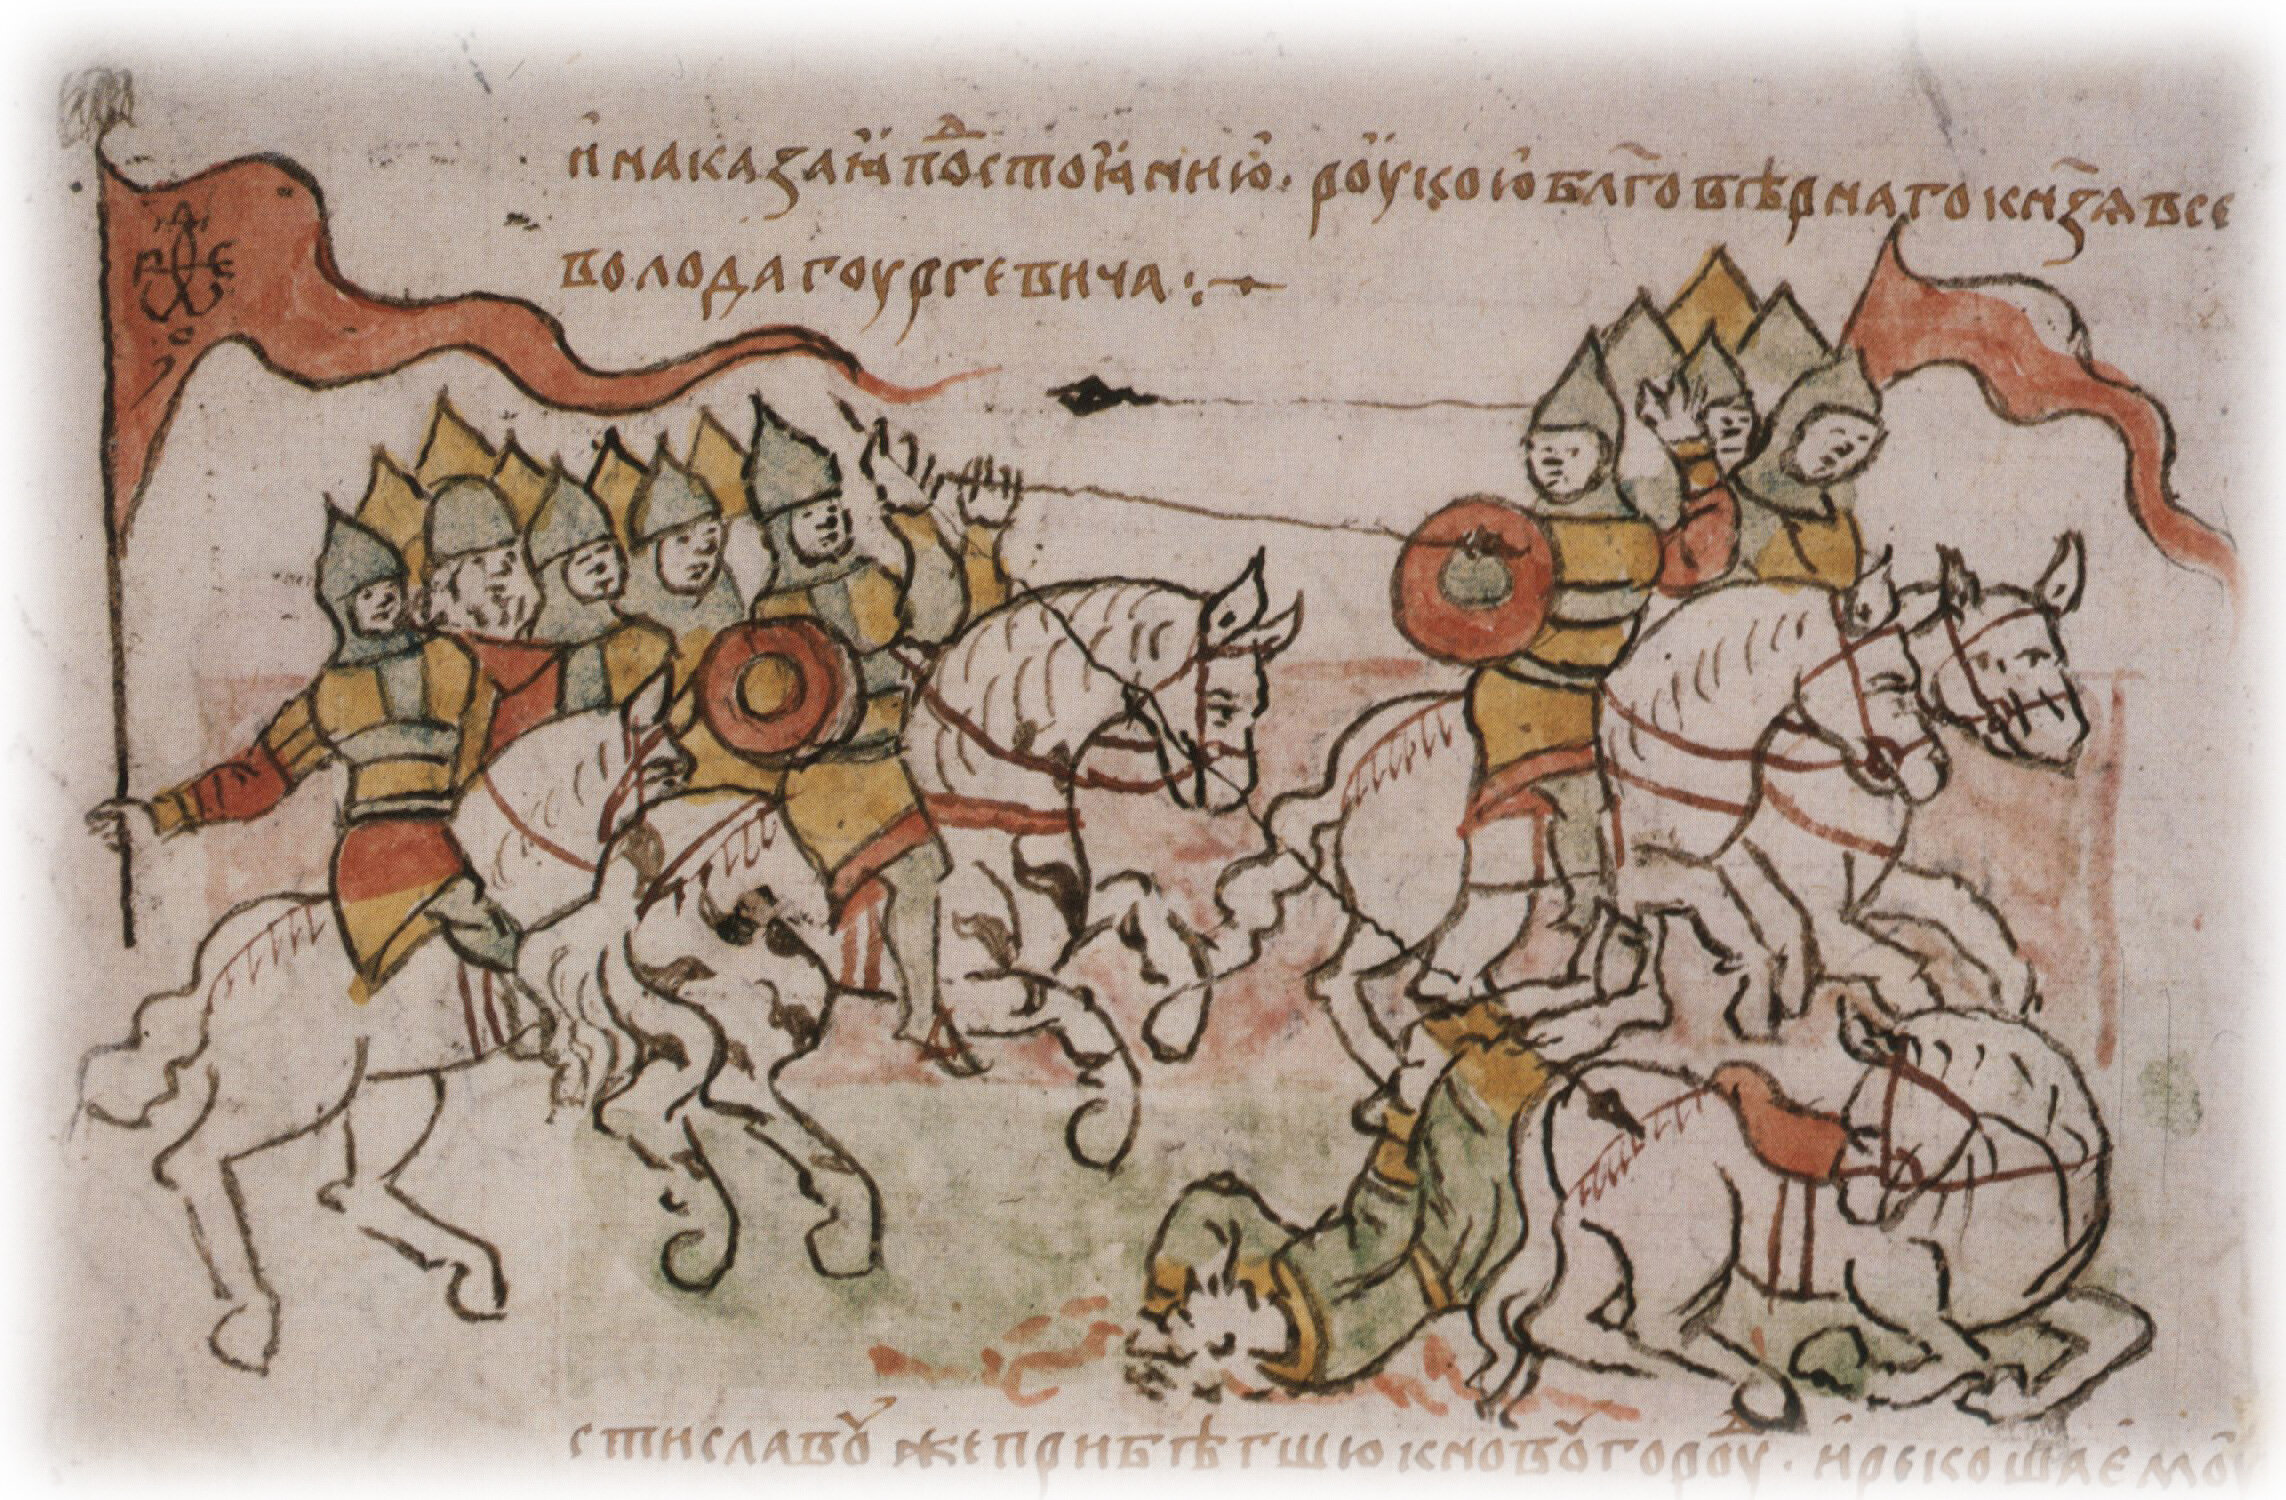 и наказаꙗ по достоꙗнию. роукою блг҃овѣрнаго кнѧзѧ все
волода гоургевича:~
стиславоу же прибѣгшю к новоугородоу. и рекоша емоу